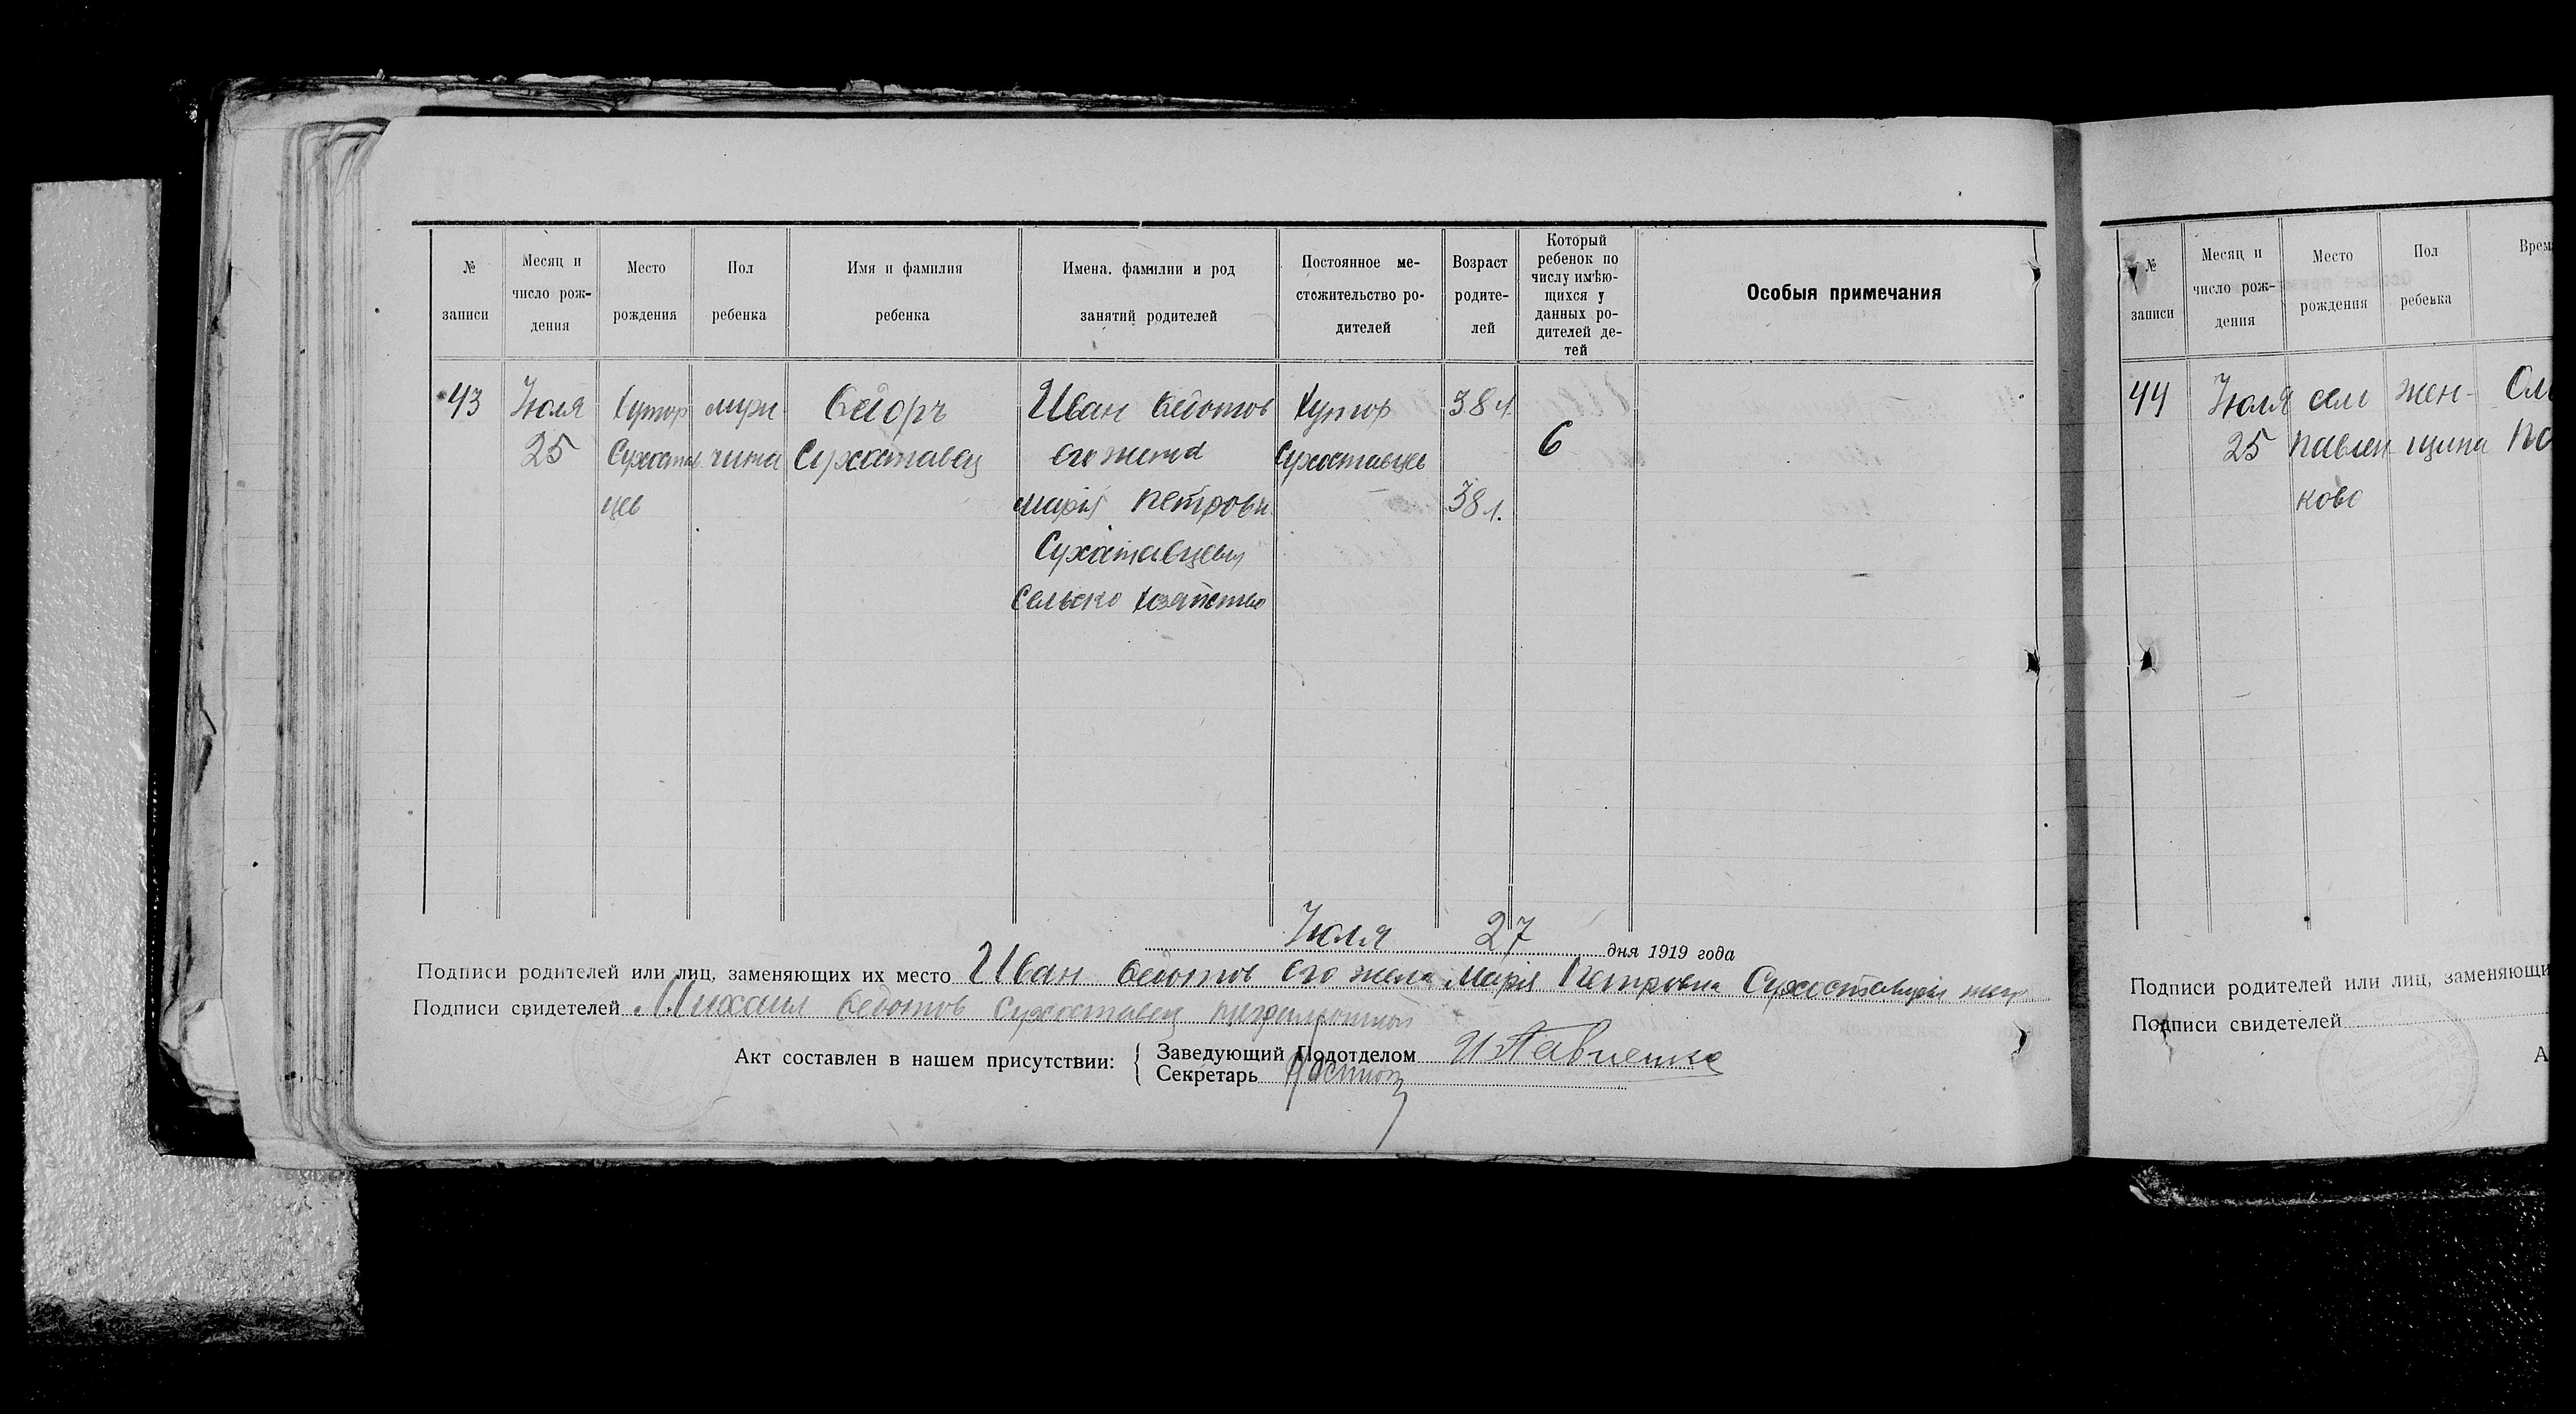 № записи
Месяц и число рождения
Место рождения
Пол ребенка
Имя и фамилия ребенка
Имена, фамилии и род занятий родителей
Постоянное местожительство родителей
Возраст родителей
Который ребенок по числу имѣющихся у данных родителей детей
Особыя примечания
43
Июля
25
Хутор
Сухостав
цев
мущи
чина
Ѳедоръ
Сухоставец
Иван Ѳедотов
его жена
Марія Петровн
Сухоставцевы
Сельско хозяйство
Хутор
Сухоставцев
38 л.
38 л.
6
Июля 27 дня 1919 года
Подписи родителей или лиц, заменяющих их место Иван Ѳедотов его жена Марія Петровна Сухоставцевы
Подписи свидетелей Михаил Ѳедотов Сухоставец
Акт составлен в нашем присутствии:
Заведующий Подотделом
Секретарь
№ записи
Месяц и число рождения
Место рождения
Пол ребенка
44
Июля
25
сел
Павлен
ково
жен-
щина
Подписи родителей или лиц, заменяющи
Подписи свидетелей
А